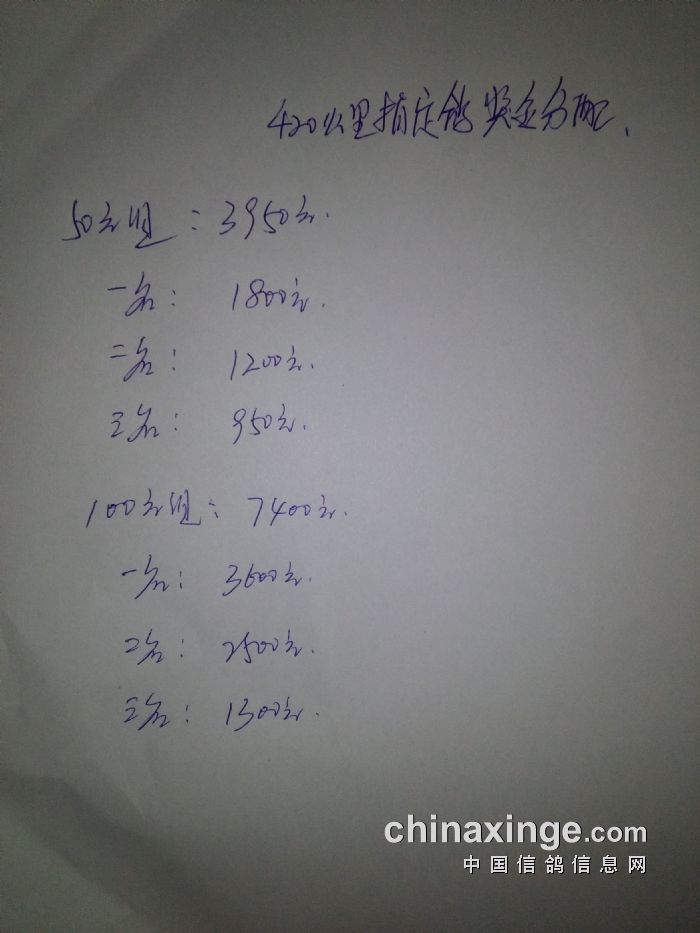 420公里指定鸽奖金分配.
50元组：3950元.
一名：1800元.
二名：1200元.
三名：950元.
100元组：7400元.
一名：3600元.
二名：2500元.
三名：1300元.
chinaxinge.com
中国信鸽信息网